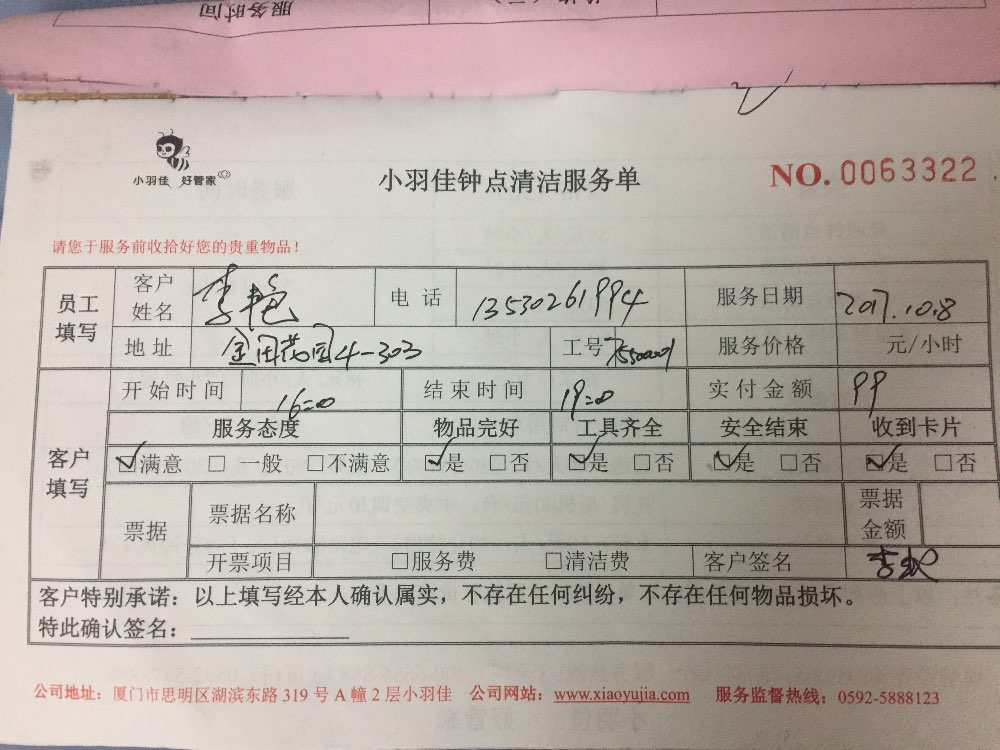 服务时间
小羽佳 好管家
小羽佳钟点清洁服务单
NO. 0063322
请您于服务前收拾好您的贵重物品！
员工填写 客户姓名 李艳 电话 13530261994 服务日期 2017.10.8
地址 金田花园4-303 工号 服务价格 元/小时
客户填写 开始时间 16:00 结束时间 19:00 实付金额 99
服务态度 物品完好 工具齐全 安全结束 收到卡片
☑满意 □一般 □不满意 ☑是 □否 ☑是 □否 ☑是 □否 ☑是 □否
票据 票据名称 票据金额
开票项目 □服务费 □清洁费 客户签名 李艳
客户特别承诺：以上填写经本人确认属实，不存在任何纠纷，不存在任何物品损坏。
特此确认签名：
公司地址：厦门市思明区湖滨东路 319 号 A 幢 2 层小羽佳 公司网站：www.xiaoyujia.com 服务监督热线：0592-5888123